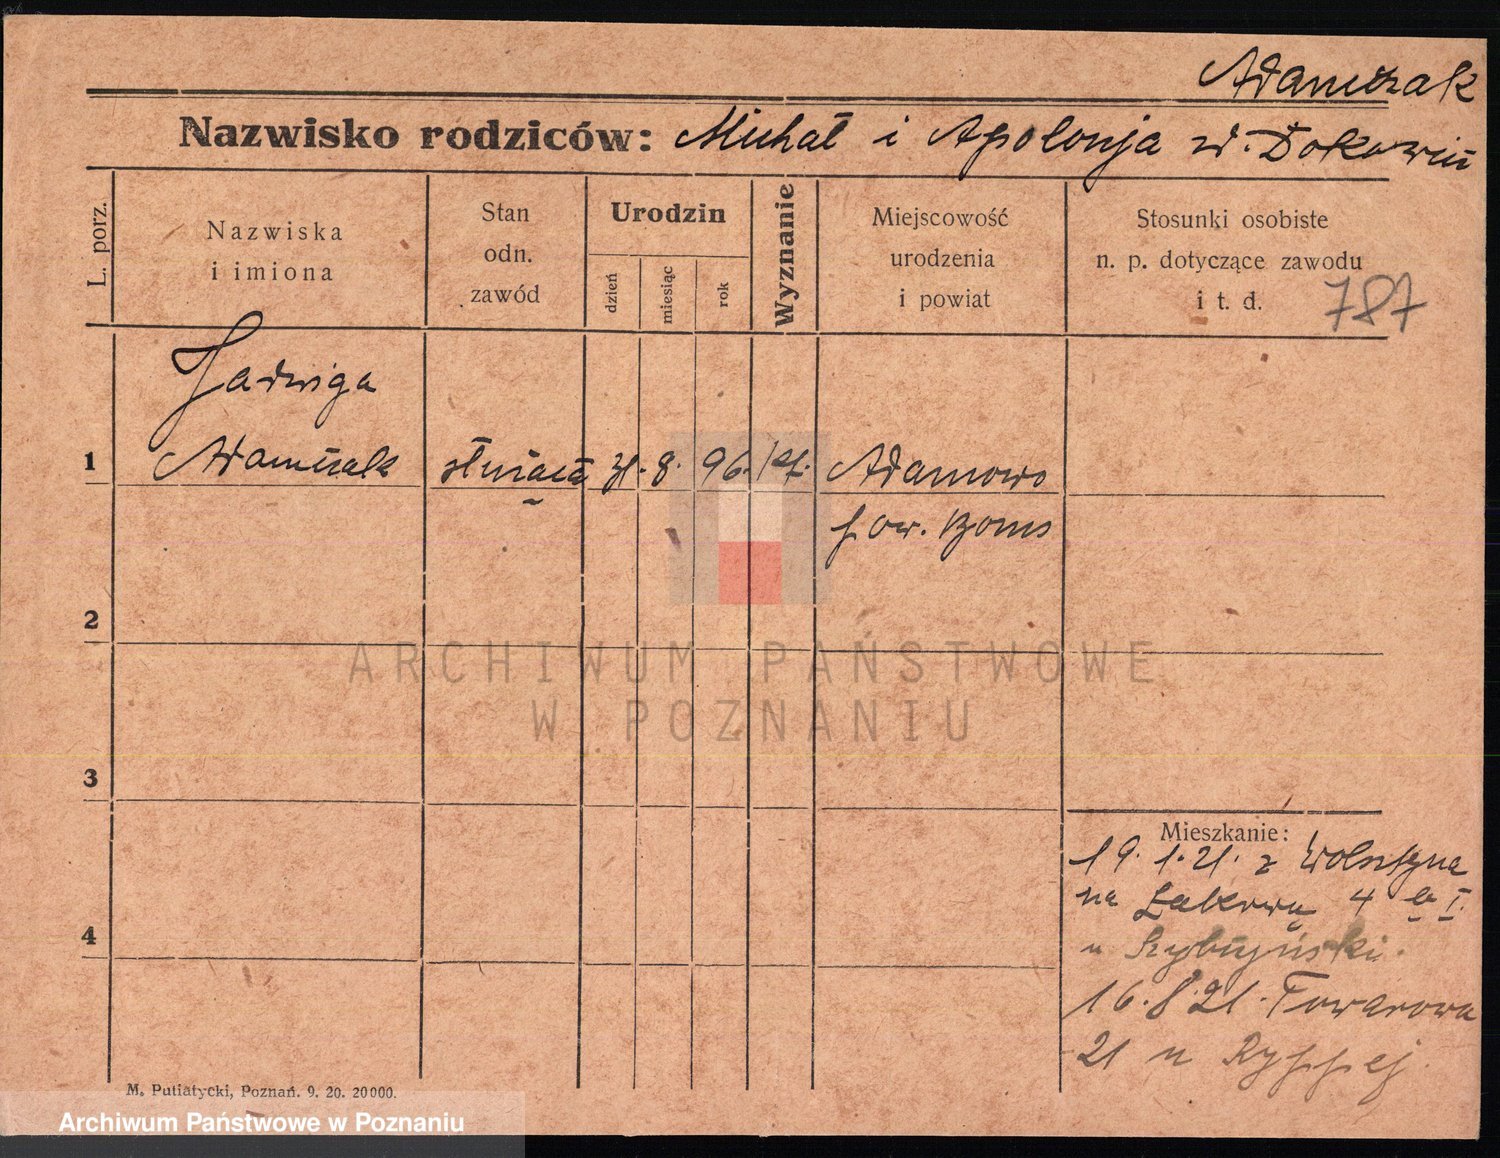 Adamczak
Nazwisko rodziców: Michał i Apolonja
L. porz.
Nazwiska
i imiona
Stan
odn.
zawód
Urodzin
dzień
miesiąc
rok
Wyznanie
Miejscowość
urodzenia
i powiat
Stosunki osobiste
n. p. dotyczące zawodu
i t. d.
787
Jadwiga
1 Adamczak służąca 31. 8. 96. kat. Adamowo
pow. Boms
2
3
4
Mieszkanie:
19. 1. 21. z Wolsztyna
na Łąkową 4 I
u Szybczyński.
16. 8. 21. Towarowa
21 u
M. Putiatycki, Poznań. 9. 20. 20000.
ARCHIWUM PAŃSTWOWE
W POZNANIU
Archiwum Państwowe w Poznaniu